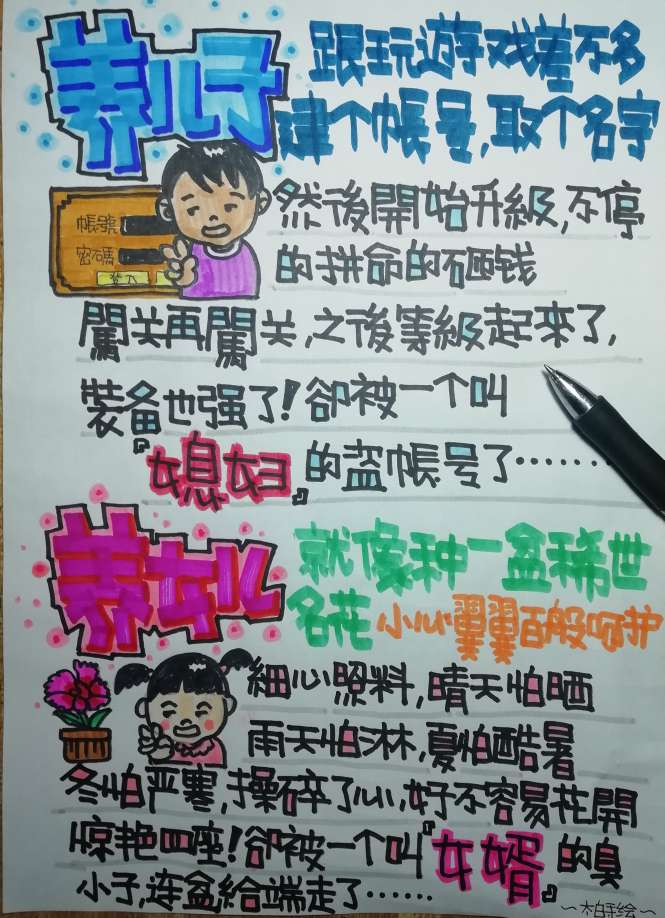 养儿子
跟玩遊戏差不多
建个帳号,取个名字
帳號
密碼
登入
然後開始升級,不停
的拼命的砸钱
闖关再闖关,之後等級起來了,
裝备也强了!卻被一个叫
『媳妇』的盗帳号了……
养女儿
就像种一盆稀世
名花 小心翼翼百般呵护
細心照料,晴天怕晒
雨天怕淋,夏怕酷暑
冬怕严寒,操碎了心,好不容易花開
惊艳四座!卻被一个叫『女婿』的臭
小子,连盆給端走了……
~柏手绘~